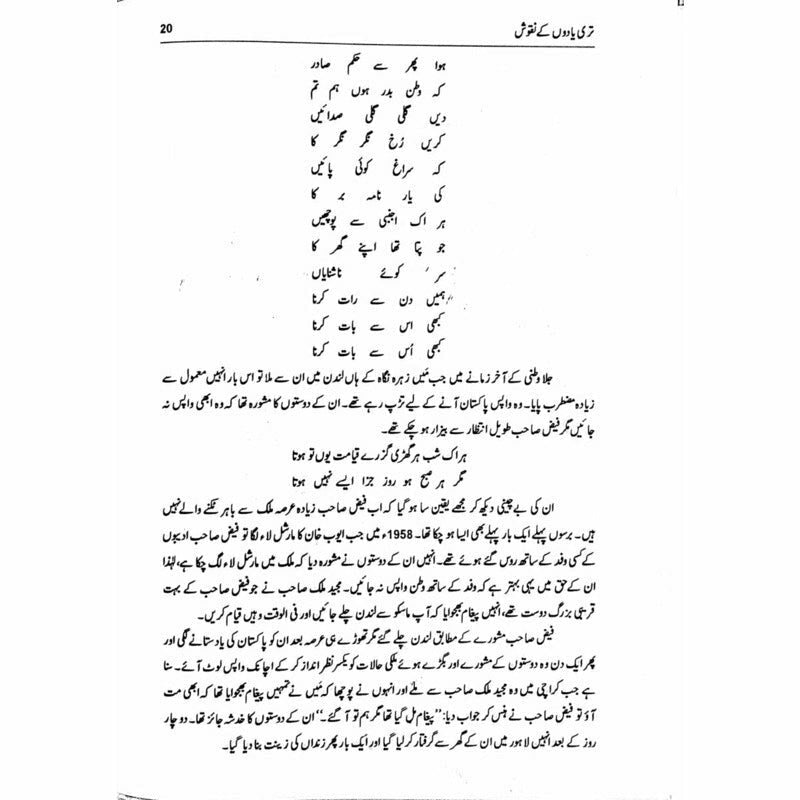 تری یادوں کے نقوش 20
ہوا پھر سے حکم صادر
کہ وطن بدر ہوں ہم تم
دیں گلی گلی صدائیں
کریں رُخ نگر نگر کا
کہ سراغ کوئی پائیں
کی یار نامہ بر کا
ہر اک اجنبی سے پوچھیں
جو پتا تھا اپنے گھر کا
سر کوئے ناشنایاں
ہمیں دن سے رات کرنا
کبھی اس سے بات کرنا
کبھی اُس سے بات کرنا
جلا وطنی کے آخر زمانے میں جب مَیں زہرہ نگاہ کے ہاں لندن میں ان سے ملا تو اس بار انہیں معمول سے
زیادہ مضطرب پایا۔ وہ واپس پاکستان آنے کے لیے تڑپ رہے تھے۔ ان کے دوستوں کا مشورہ تھا کہ وہ ابھی واپس نہ
جائیں مگر فیض صاحب طویل انتظار سے بیزار ہو چکے تھے۔
ہر اک شب ہر گھڑی گزرے قیامت یوں تو ہوتا
مگر ہر صبح ہو روز جزا ایسے نہیں ہوتا
ان کی بے چینی دیکھ کر مجھے یقین سا ہو گیا کہ اب فیض صاحب زیادہ عرصہ ملک سے باہر نکنے والے نہیں
ہیں۔ برسوں پہلے ایک بار پہلے بھی ایسا ہو چکا تھا۔ 1958ء میں جب ایوب خان کا مارشل لاء لگا تو فیض صاحب ادیبوں
کے کسی وفد کے ساتھ روس گئے ہوئے تھے۔ انہیں ان کے دوستوں نے مشورہ دیا کہ ملک میں مارشل لاء لگ چکا ہے، لہٰذا
ان کے حق میں یہی بہتر ہے کہ وفد کے ساتھ وطن واپس نہ جائیں۔ مجید ملک صاحب نے جو فیض صاحب کے بہت
قریبی بزرگ دوست تھے، انہیں پیغام بھجوایا کہ آپ ماسکو سے لندن چلے جائیں اور فی الوقت وہیں قیام کریں۔
فیض صاحب مشورے کے مطابق لندن چلے گئے مگر تھوڑے ہی عرصہ بعد ان کو پاکستان کی یاد ستانے لگی اور
پھر ایک دن وہ دوستوں کے مشورے اور بگڑے ہوئے ملکی حالات کو یکسر نظر انداز کر کے اچانک واپس لوٹ آئے۔ سنا
ہے جب کراچی میں وہ مجید ملک صاحب سے ملے اور انہوں نے پوچھا کہ مَیں نے تمہیں پیغام بھجوایا تھا کہ ابھی مت
آؤ تو فیض صاحب نے ہنس کر جواب دیا: ”پیغام مل گیا تھا مگر ہم تو آ گئے۔“ ان کے دوستوں کا خدشہ جائز تھا۔ دو چار
روز کے بعد انہیں لاہور میں ان کے گھر سے گرفتار کر لیا گیا اور ایک بار پھر زنداں کی زینت بنا دیا گیا۔